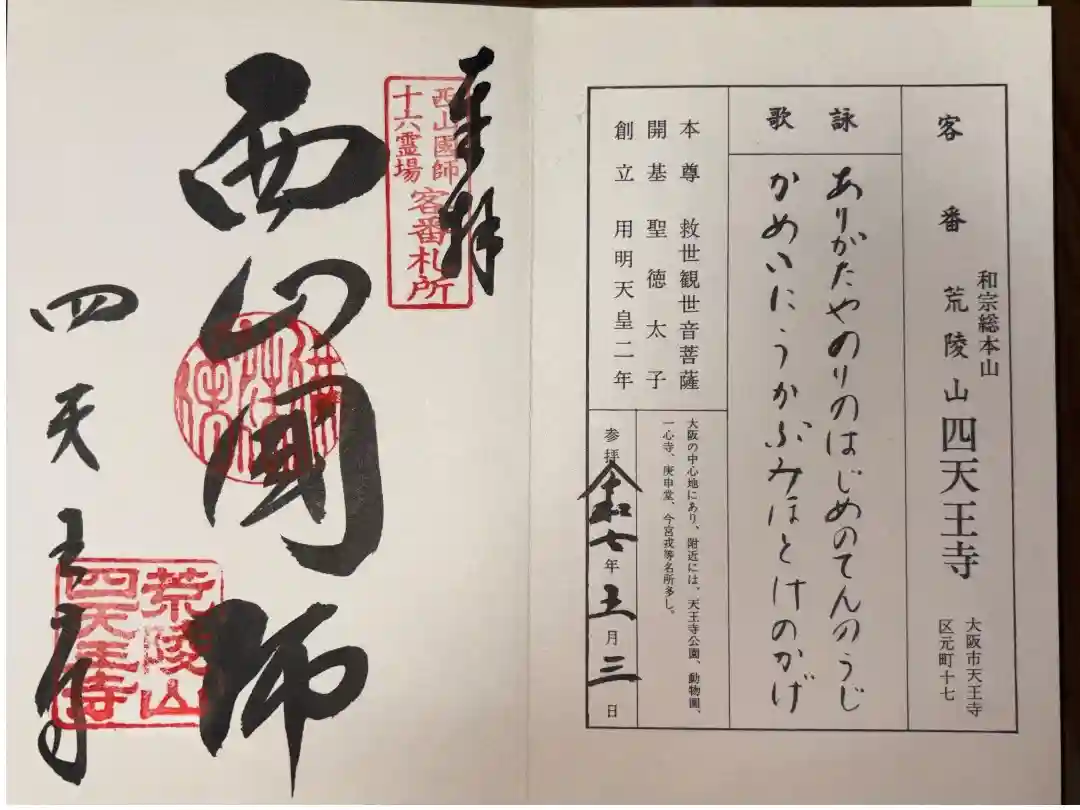 客番
和宗総本山
荒陵山 四天王寺
大阪市天王寺
区元町十七
詠歌
ありがたやのりのはじめのてんのうじ
かめいにうかぶみほとけのかげ
本尊 救世観世音菩薩
開基 聖徳太子
創立 用明天皇二年
大阪の中心地にあり、附近には、天王寺公園、動物園、
一心寺、庚申堂、今宮戎等名所多し。
参拝 令和七年十一月三日
奉拝
西山國師
十六霊場
客番札所
西山國師
四天王寺
荒陵山
四天王寺